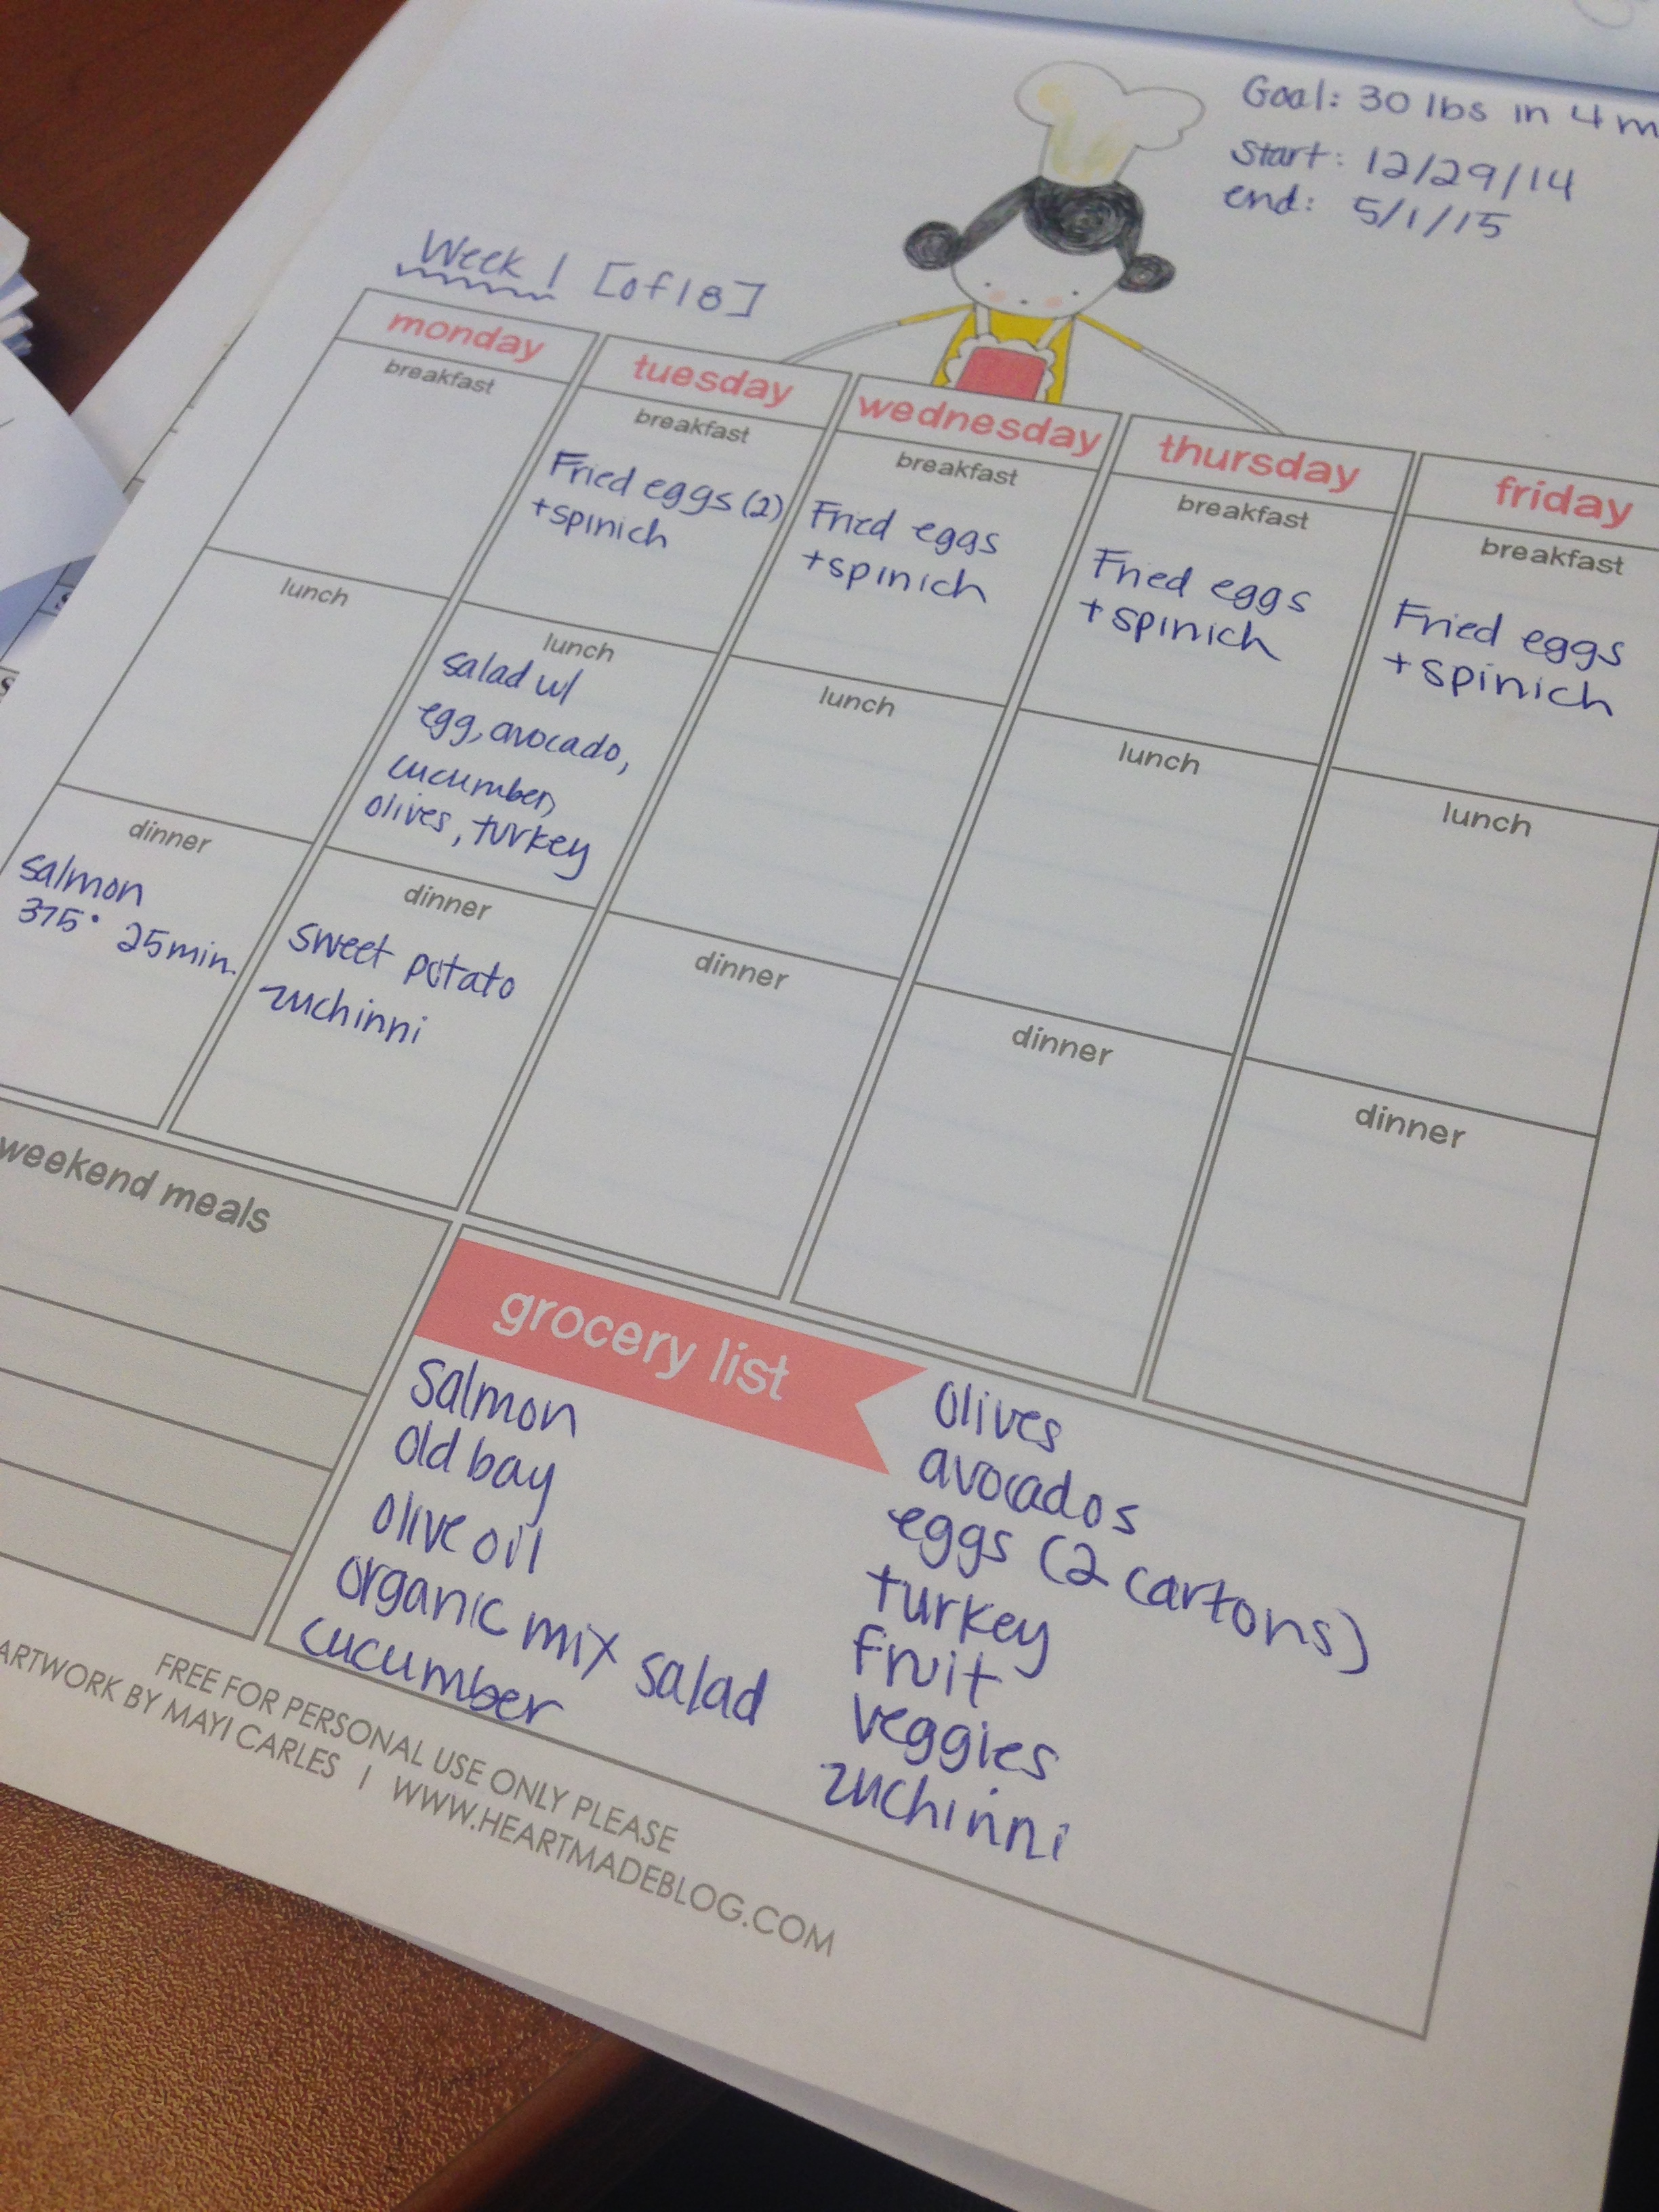 Goal: 30 lbs in 4 m
Start: 12/29/14
end: 5/1/15
Week 1 [of 18]
monday
breakfast
lunch
dinner
salmon
375° 25min.
tuesday
breakfast
Fried eggs (2)
+spinich
lunch
salad w/
egg, avocado,
cucumber,
olives, turkey
dinner
sweet potato
zuchinni
wednesday
breakfast
Fried eggs
+spinich
lunch
dinner
thursday
breakfast
Fried eggs
+spinich
lunch
dinner
friday
breakfast
Fried eggs
+spinich
lunch
dinner
weekend meals
grocery list
salmon
old bay
olive oil
organic mix salad
cucumber
olives
avocados
eggs (2 cartons)
turkey
fruit
veggies
zuchinni
FREE FOR PERSONAL USE ONLY PLEASE
ARTWORK BY MAYI CARLES | WWW.HEARTMADEBLOG.COM